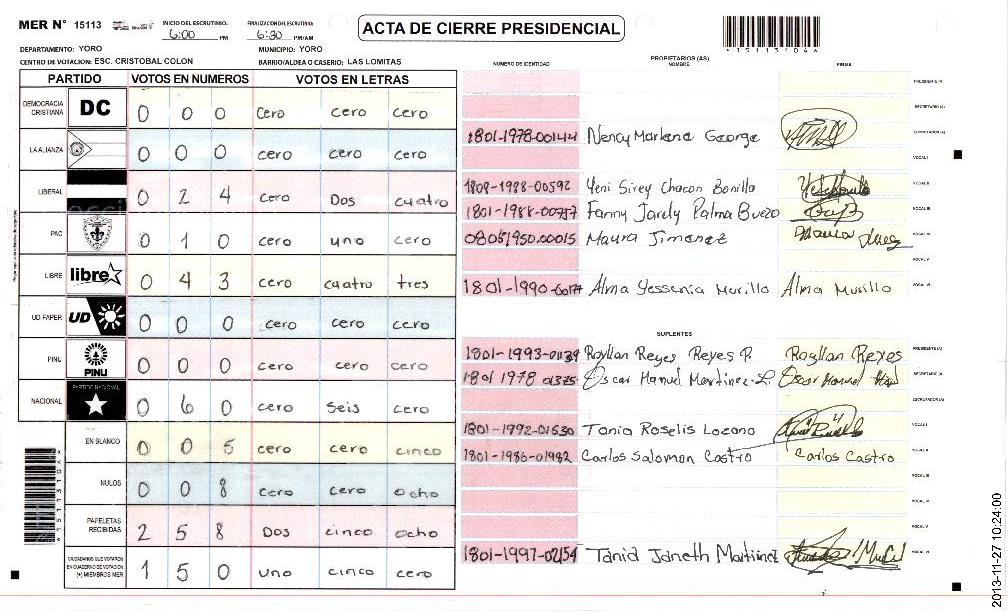 MER N° 15113
INICIO DEL ESCRUTINIO: 6:00 PM
FINALIZACION DEL ESCRUTINIO: 6:30 PM/AM
ACTA DE CIERRE PRESIDENCIAL
*151131044*
DEPARTAMENTO: YORO
MUNICIPIO: YORO
CENTRO DE VOTACION: ESC. CRISTOBAL COLON
BARRIO/ALDEA O CASERIO: LAS LOMITAS
PARTIDO VOTOS EN NUMEROS VOTOS EN LETRAS
DEMOCRACIA CRISTIANA DC 0 0 0 cero cero cero
LA ALIANZA 0 0 0 cero cero cero
LIBERAL 0 2 4 cero Dos cuatro
PAC 0 1 0 cero uno cero
LIBRE libre 0 4 3 cero cuatro tres
UD-FAPER UD 0 0 0 cero cero cero
PINU PINU 0 0 0 cero cero cero
NACIONAL PARTIDO NACIONAL 0 6 0 cero seis cero
EN BLANCO 0 0 5 cero cero cinco
NULOS 0 0 8 cero cero ocho
PAPELETAS RECIBIDAS 2 5 8 Dos cinco ocho
CIUDADANOS QUE VOTARON EN CUADERNO DE VOTACION (+) MIEMBROS MER 1 5 0 uno cinco cero
PROPIETARIOS (AS)
NUMERO DE IDENTIDAD NOMBRE FIRMA
PRESIDENTE (A)
SECRETARIO (A)
1801-1978-00144 Nency Marlene George ESCRUTADOR (A)
VOCAL I
1809-1988-00592 Yeni Sirey Chacon Bonillo VOCAL II
1801-1988-00757 Fanny Jarely Palma Buezo VOCAL III
0805-1950-00015 Maura Jimenez VOCAL IV
VOCAL V
1801-1990- Alma Yessenia Murillo Alma Murillo VOCAL VI
SUPLENTES
1801-1993-01139 Royllan Reyes Reyes P. Royllan Reyes PRESIDENTE (A)
1801 1978 01375 Oscar Manuel Martinez. L. Oscar Manuel SECRETARIO (A)
ESCRUTADOR (A)
1801-1992-01530 Tania Roselis Lozano VOCAL I
1801-1986-01982 Carlos Salomon Castro Carlos Castro VOCAL II
VOCAL III
VOCAL IV
VOCAL V
1801-1997-02154 Tania Janeth Martinez VOCAL VI
*151131044*
2013-11-27 10:24:00